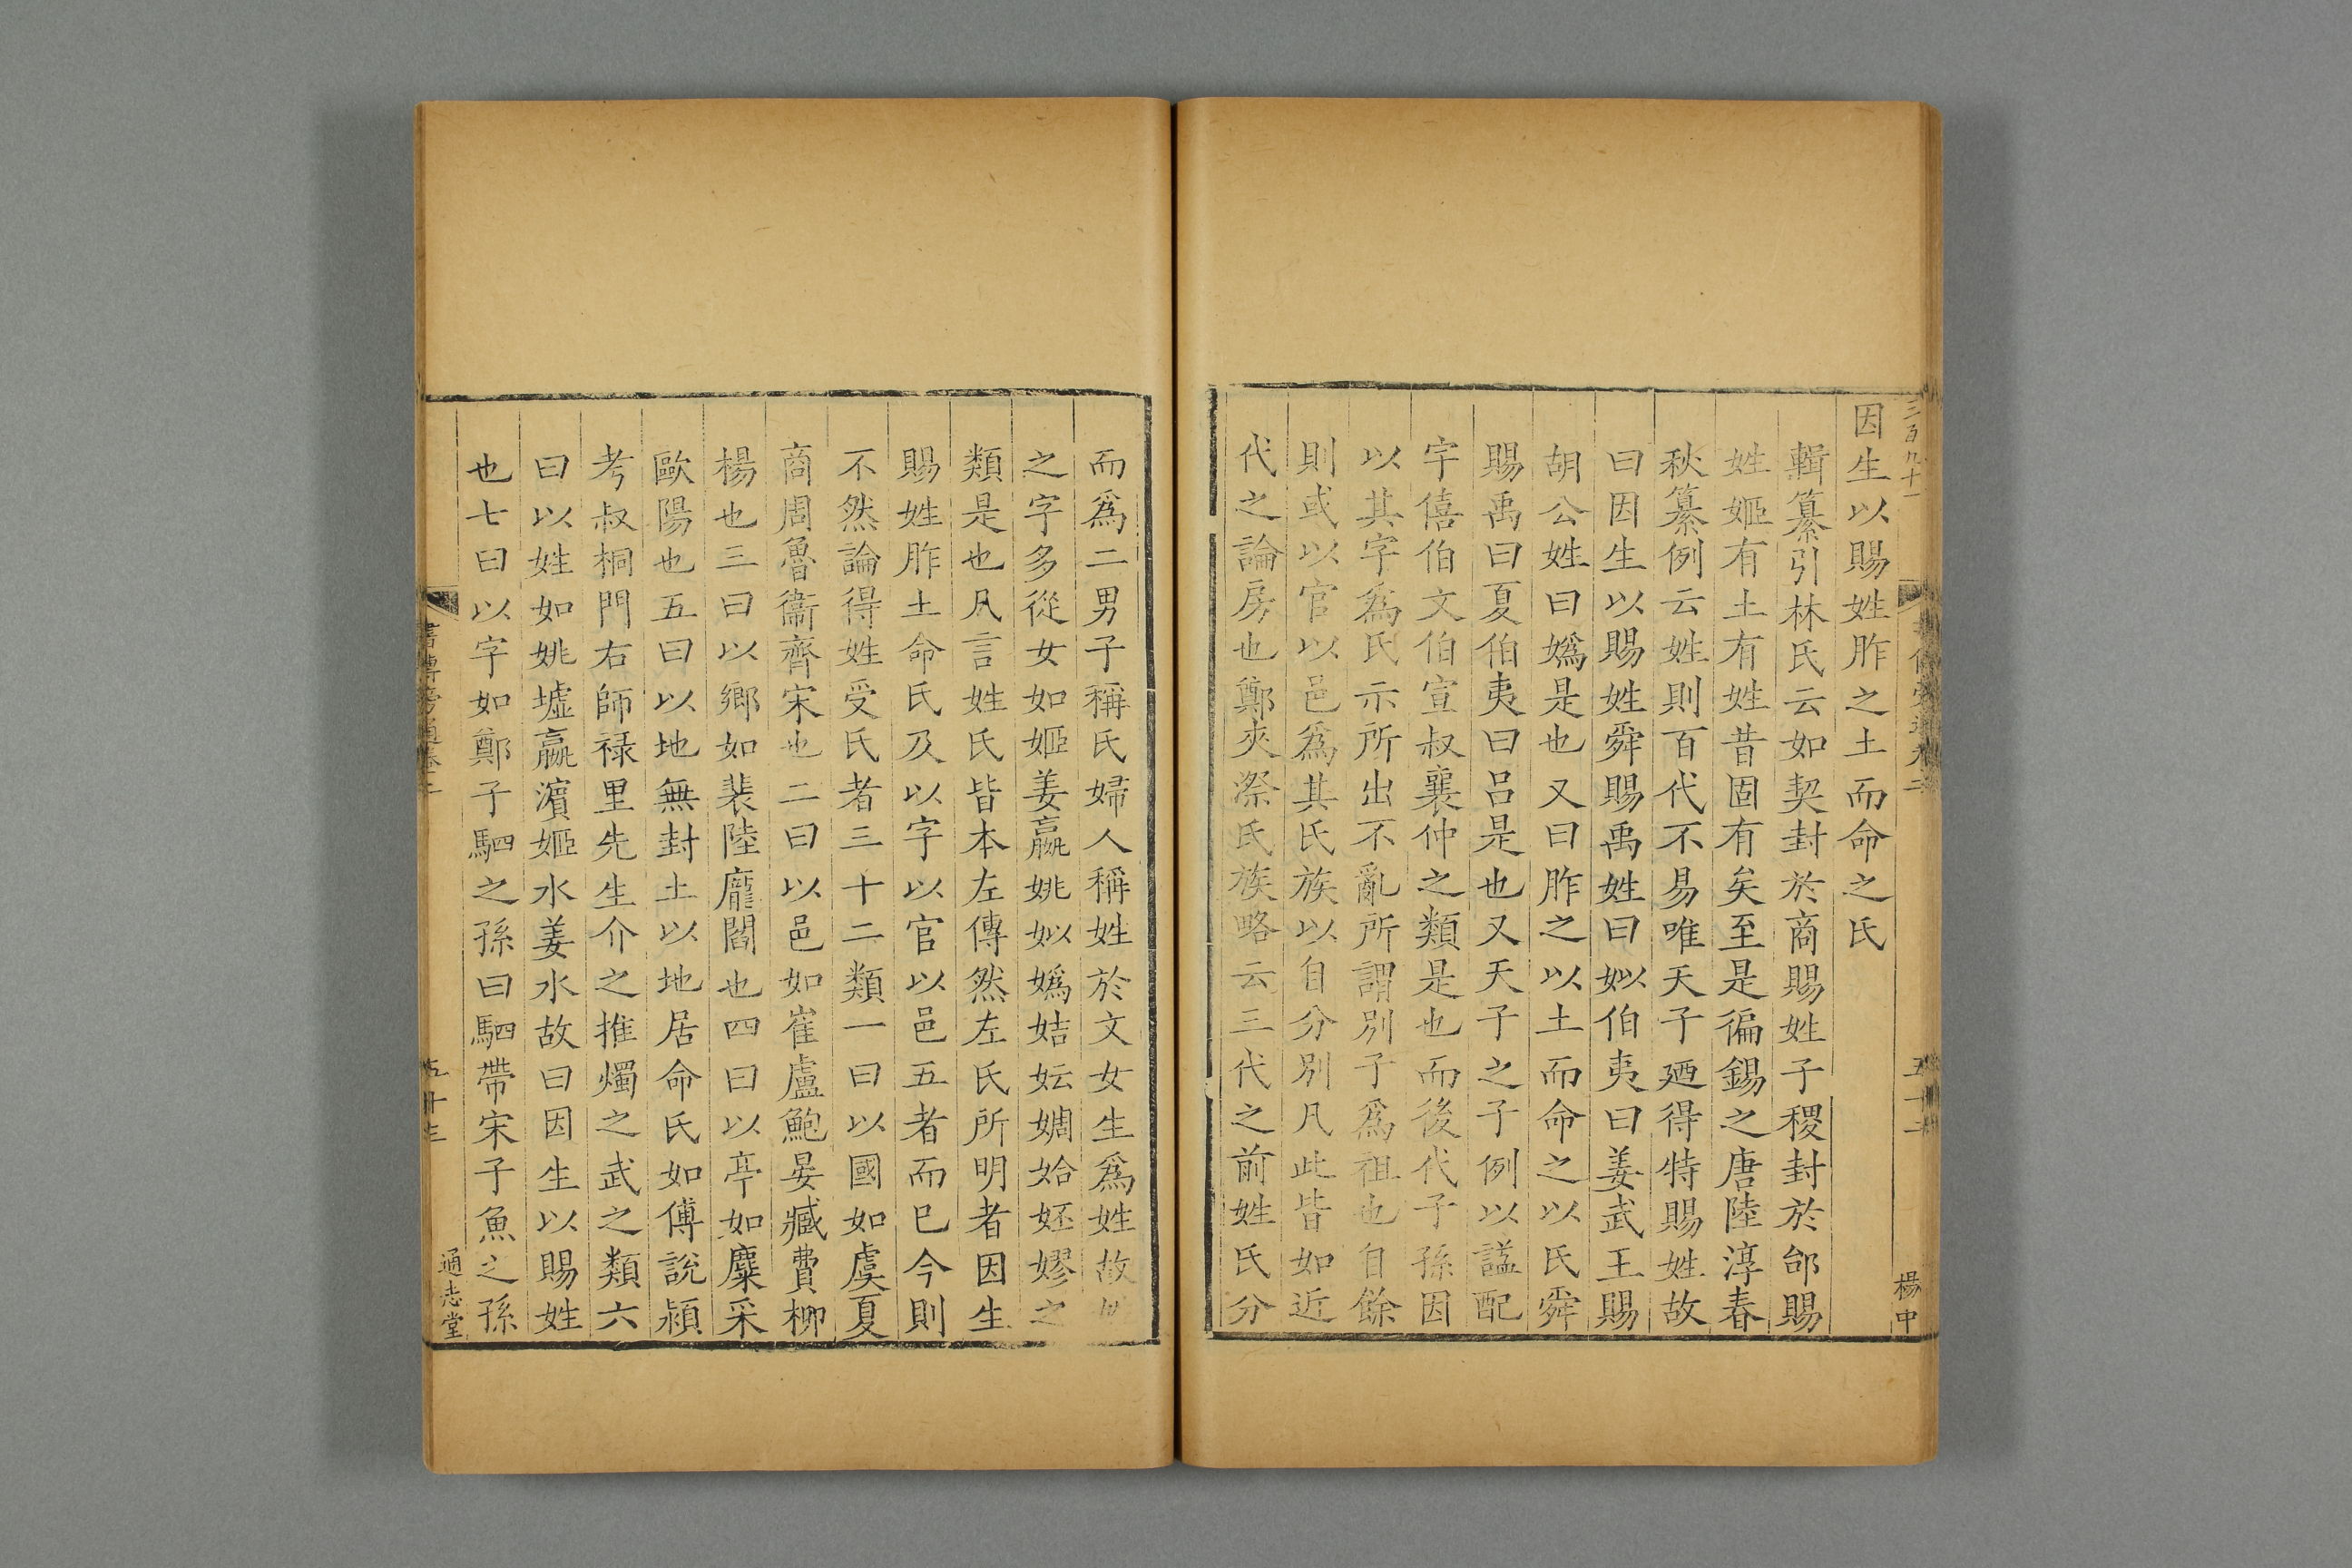 三百九十一
因生以賜姓胙之土而命之氏
輯纂引林氏云如契封於商賜姓子稷封於邰賜
姓姬有土有姓昔固有矣至是徧錫之唐陸淳春
秋纂例云姓則百代不易唯天子廼得特賜姓故
曰因生以賜姓舜賜禹姓曰姒伯夷曰姜武王賜
胡公姓曰嬀是也又曰胙之以土而命之以氏舜
賜禹曰夏伯夷曰呂是也又天子之子例以謚配
字僖伯文伯宣叔襄仲之類是也而後代子孫因
以其字爲氏示所出不亂所謂別子爲祖也自餘
則或以官以邑爲其氏族以自分別凡此皆如近
代之論房也鄭夾漈氏族略云三代之前姓氏分
楊中
而爲二男子稱氏婦人稱姓於文女生爲姓故
之字多從女如姬姜嬴姚姒嬀姞妘婤姶妚嫪之
類是也凡言姓氏皆本左傳然左氏所明者因生
賜姓胙土命氏及以字以官以邑五者而已今則
不然論得姓受氏者三十二類一曰以國如虞夏
商周魯衞齊宋也二曰以邑如崔盧鮑晏臧費柳
楊也三曰以鄉如裴陸龐閻也四曰以亭如麋采
歐陽也五曰以地無封土以地居命氏如傅說潁
考叔桐門右師祿里先生介之推燭之武之類六
曰以姓如姚墟嬴濵姬水姜水故曰因生以賜姓
也七曰以字如鄭子駟之孫曰駟帶宋子魚之孫
書傳旁通卷二
五十三
通志堂